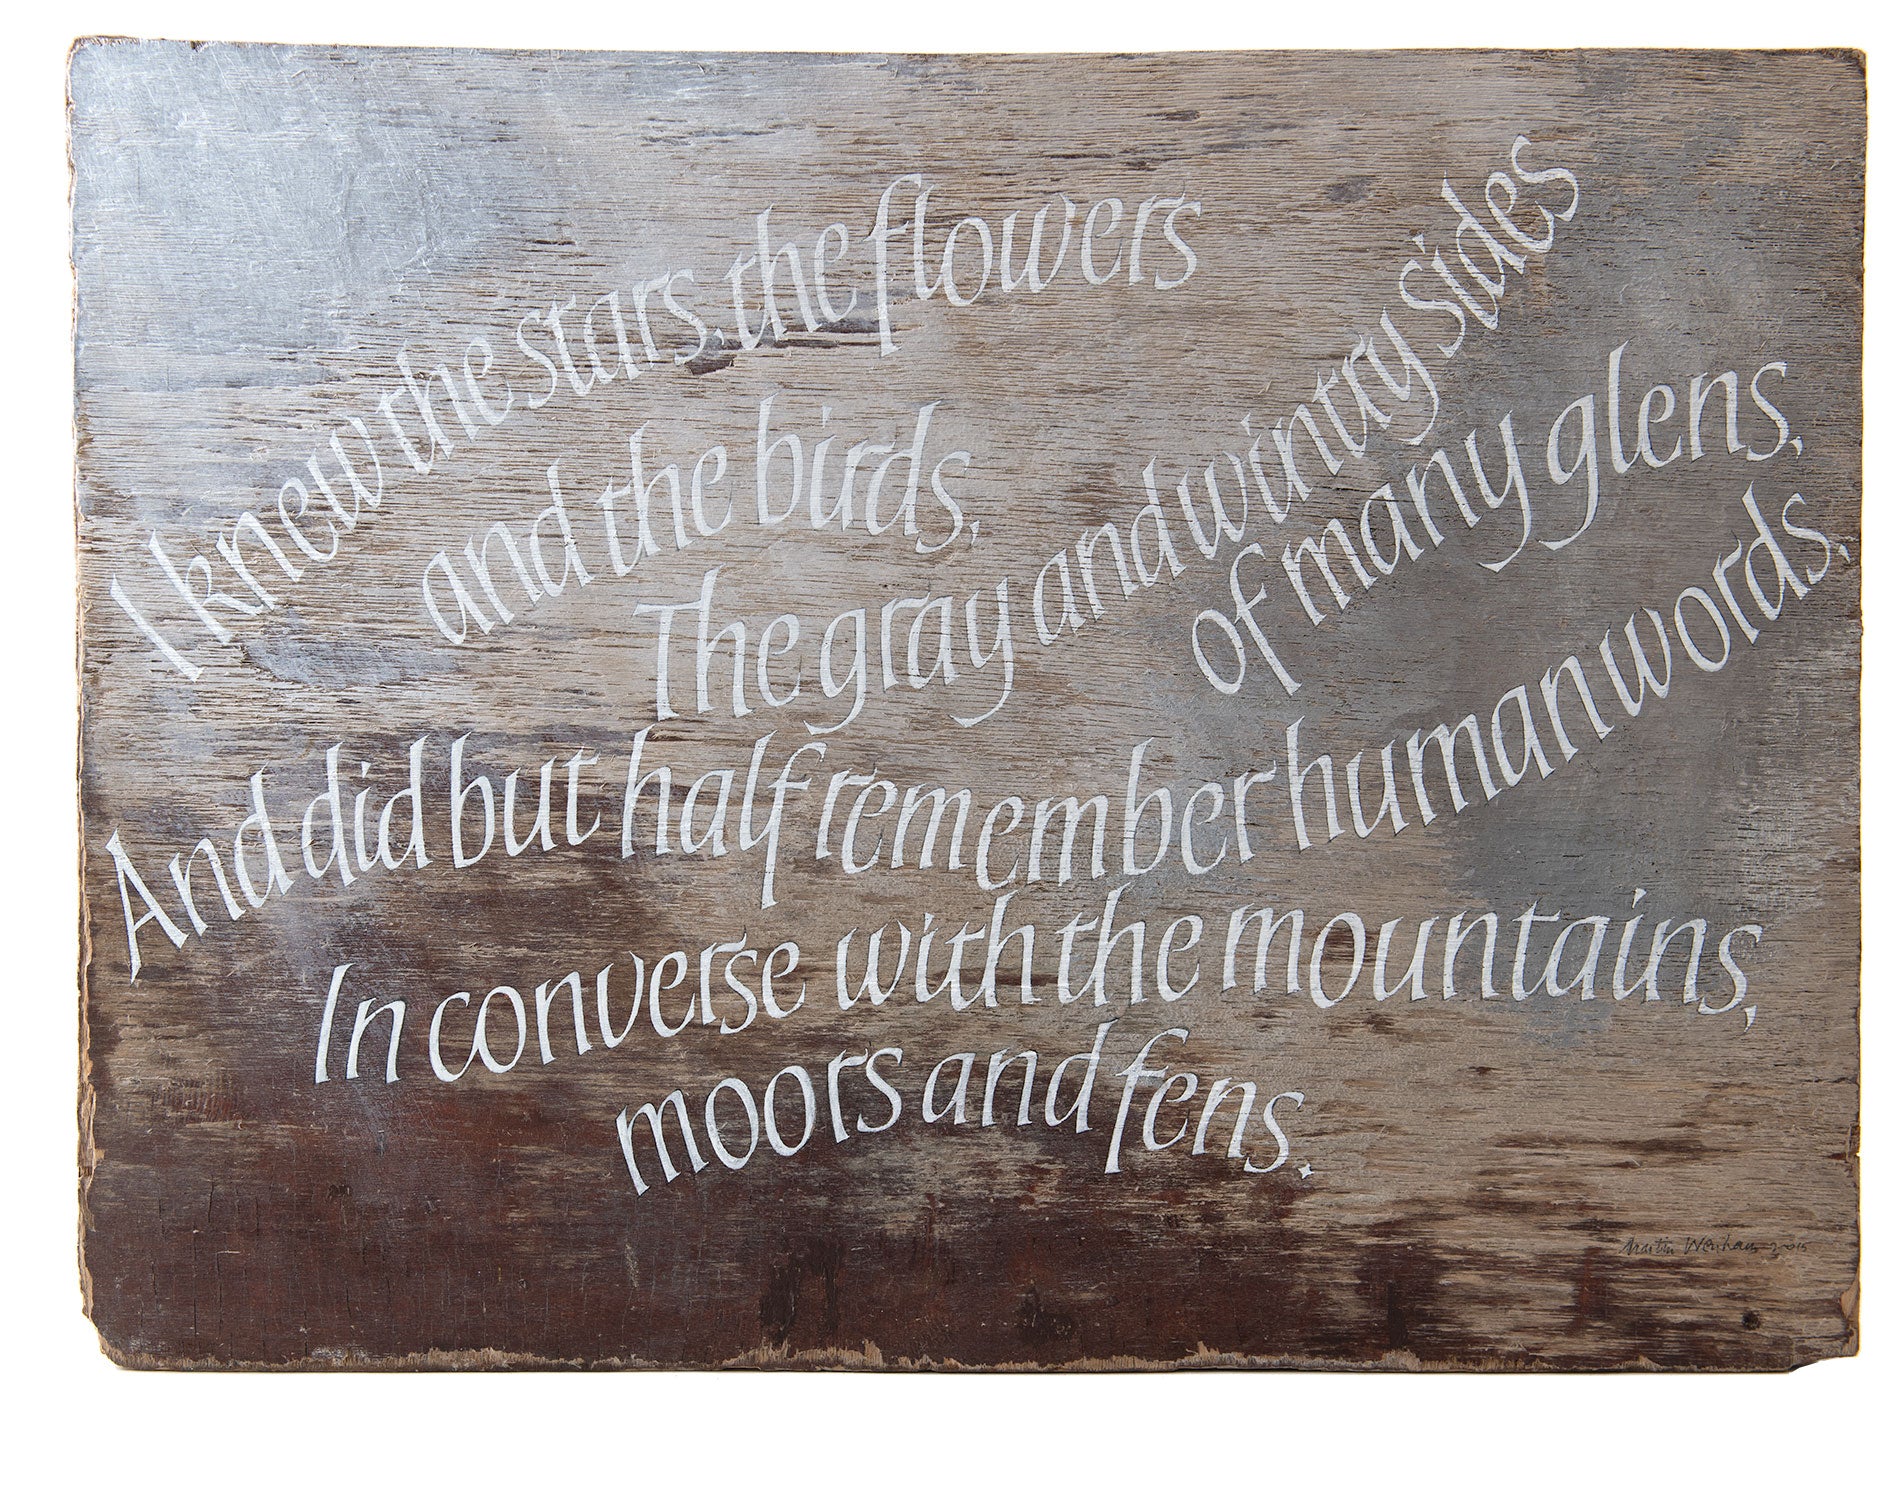 I knew the stars, the flowers
and the birds,
The gray and wintry sides
of many glens,
And did but half remember human words,
In converse with the mountains,
moors and fens.
Martin Wenham 2015